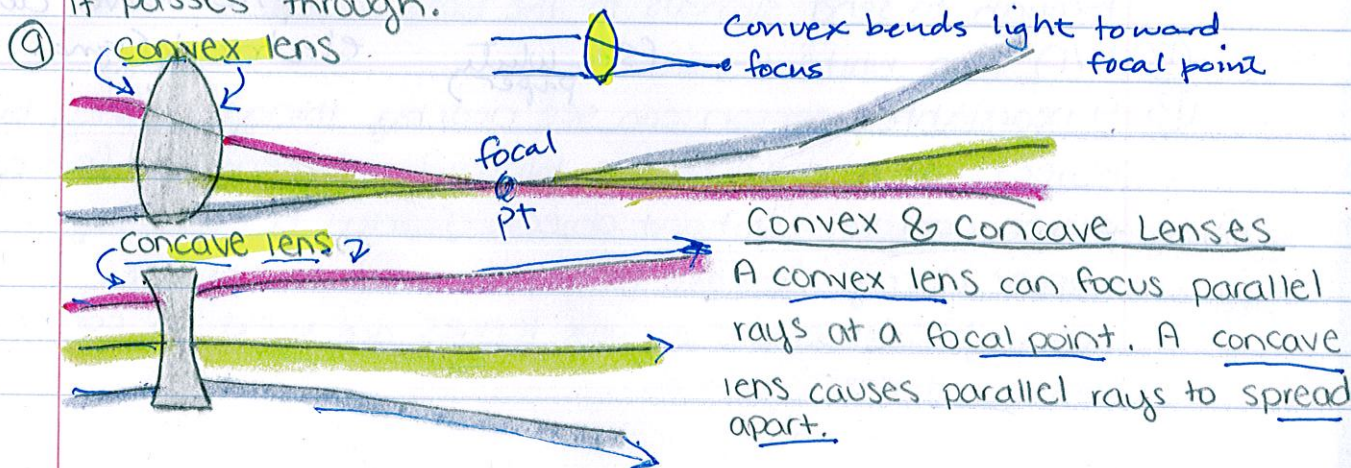 it passes through.
9 convex lens
Convex bends light toward
focus focal point
focal
pt
concave lens
Convex & Concave Lenses
A convex lens can focus parallel
rays at a focal point. A concave
lens causes parallel rays to spread
apart.